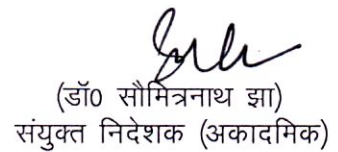 (डॉ0 सौमित्रनाथ झा)
संयुक्त निदेशक (अकादमिक)